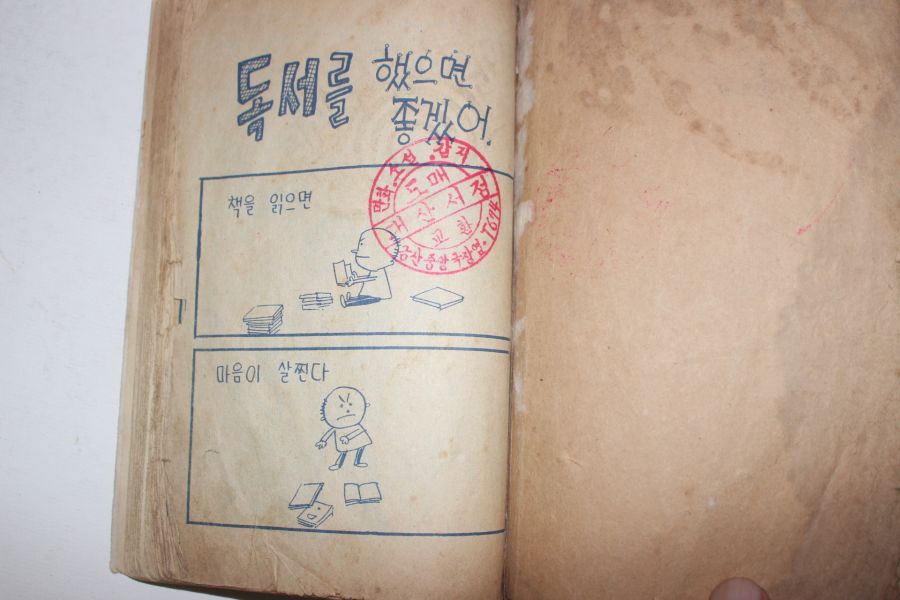 독서를 했으면
좋겠어.
만화·소설·잡지
도매
대산서점
교환
책을 읽으면
마음이 살찐다